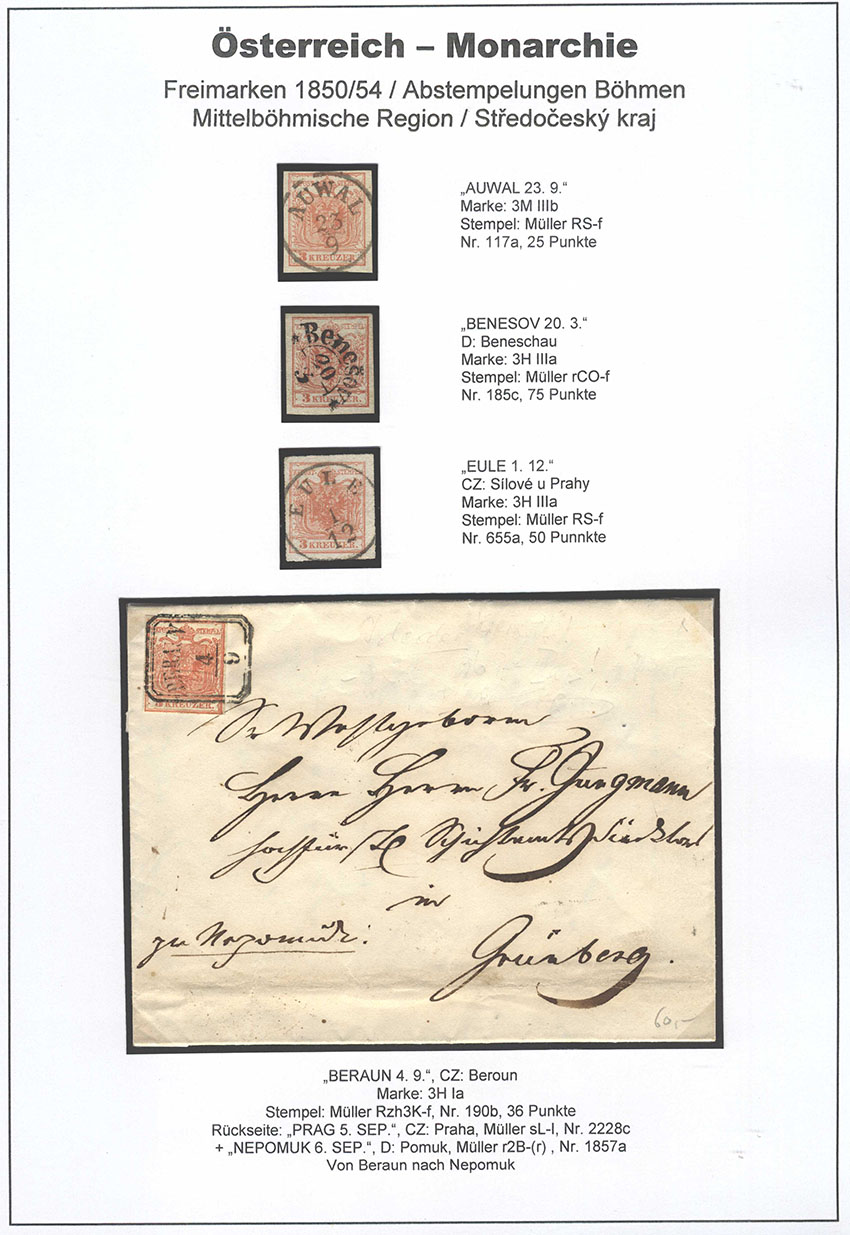 Österreich – Monarchie
Freimarken 1850/54 / Abstempelungen Böhmen
Mittelböhmische Region / Středočeský kraj
AUWAL
23
9
3 KREUZER
„AUWAL 23. 9.“
Marke: 3M IIIb
Stempel: Müller RS-f
Nr. 117a, 25 Punkte
Benešov
20
3
3 KREUZER
„BENESOV 20. 3.“
D: Beneschau
Marke: 3H IIIa
Stempel: Müller rCO-f
Nr. 185c, 75 Punkte
EULE
1
12
3 KREUZER
„EULE 1. 12.“
CZ: Sílové u Prahy
Marke: 3H IIIa
Stempel: Müller RS-f
Nr. 655a, 50 Punnkte
STEMPEL
BERAUN
4
9
KREUZER.
Sr Wohlgeboren
Herrn Herrn Fr. Jungmann
in
zu Nepomuk:
Grünberg.
60,-
„BERAUN 4. 9.“, CZ: Beroun
Marke: 3H Ia
Stempel: Müller Rzh3K-f, Nr. 190b, 36 Punkte
Rückseite: „PRAG 5. SEP.“, CZ: Praha, Müller sL-I, Nr. 2228c
+ „NEPOMUK 6. SEP.“, D: Pomuk, Müller r2B-(r) , Nr. 1857a
Von Beraun nach Nepomuk